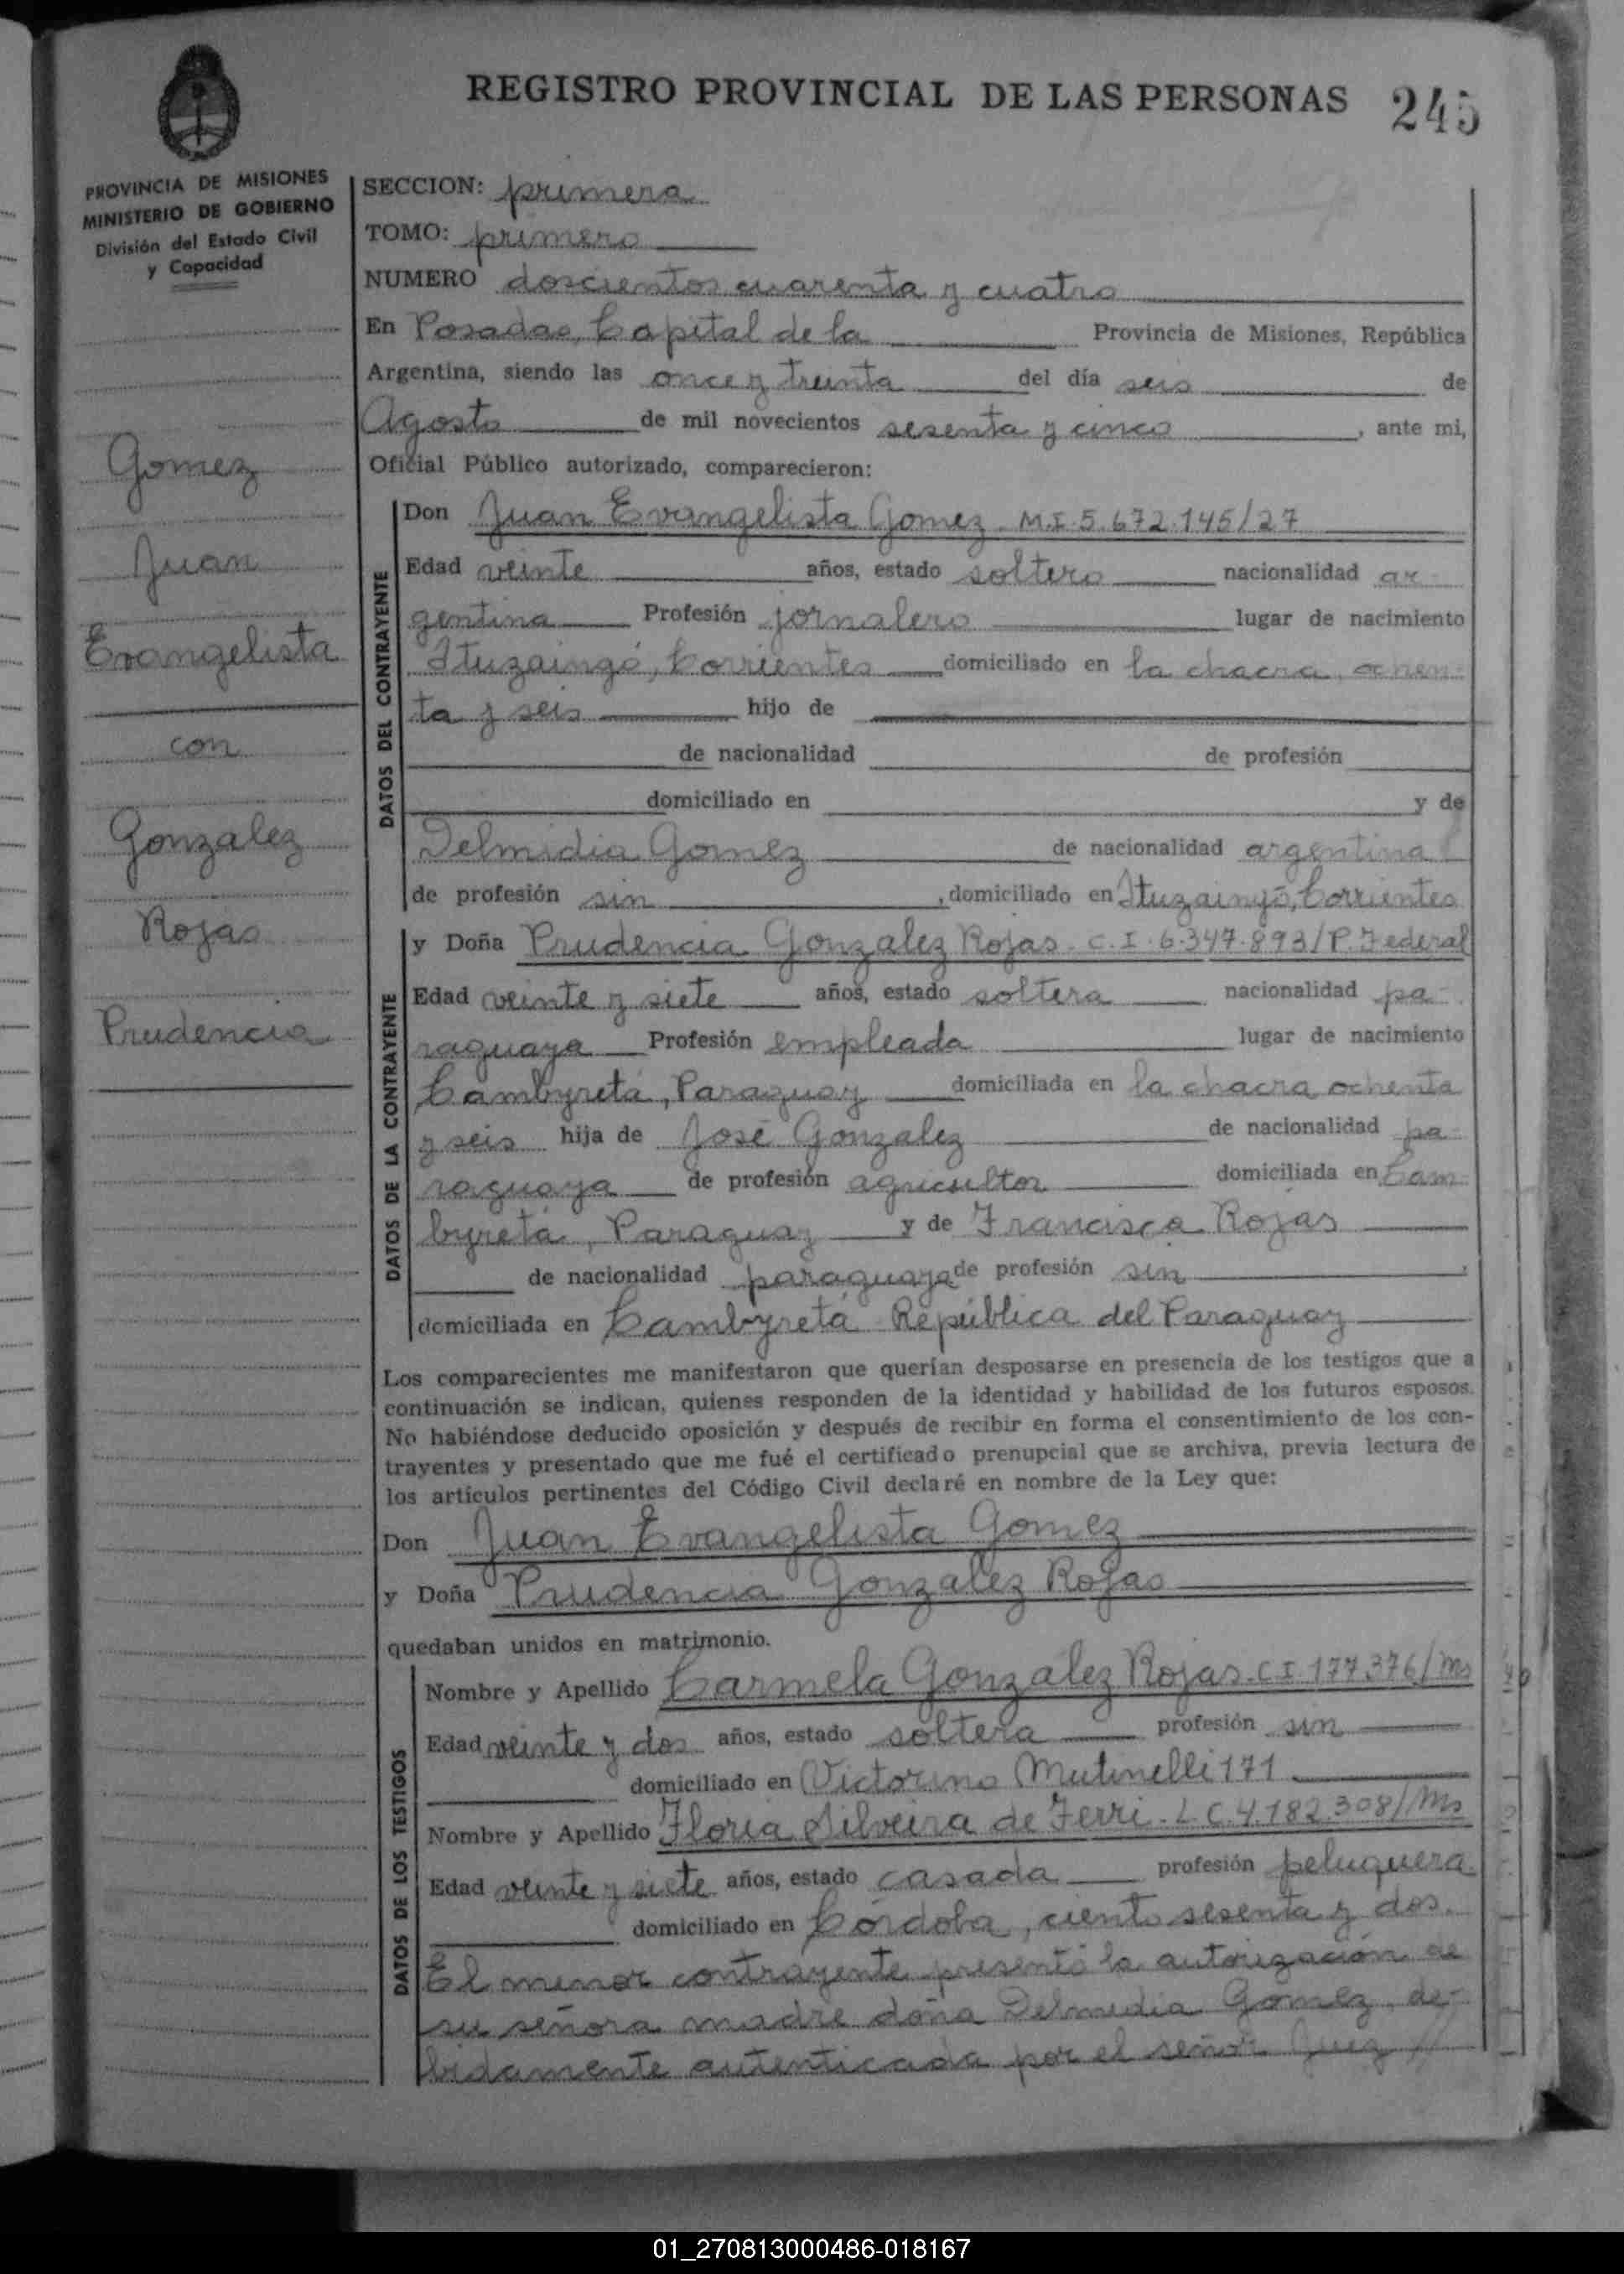 REGISTRO PROVINCIAL DE LAS PERSONAS 245
PROVINCIA DE MISIONES
MINISTERIO DE GOBIERNO
División del Estado Civil
y Capacidad
Gomez
Juan
Evangelista
con
Gonzalez
Rojas
Prudencia
SECCION: primera
TOMO: primero
NUMERO doscientos cuarenta y cuatro
En Posadas, Capital de la Provincia de Misiones, República
Argentina, siendo las once y treinta del día seis de
Agosto de mil novecientos sesenta y cinco, ante mi,
Oficial Público autorizado, comparecieron:
DATOS DEL CONTRAYENTE
Don Juan Evangelista Gomez - M.I. 5.672.145/27
Edad veinte años, estado soltero nacionalidad ar-
gentina Profesión jornalero lugar de nacimiento
Ituzaingó, Corrientes domiciliado en la chacra ochen-
ta y seis hijo de
de nacionalidad de profesión
domiciliado en y de
Delmidia Gomez de nacionalidad argentina
de profesión sin, domiciliado en Ituzaingó, Corrientes
DATOS DE LA CONTRAYENTE
y Doña Prudencia Gonzalez Rojas - C.I. 6.347.893/P. Federal
Edad veinte y siete años, estado soltera nacionalidad pa-
raguaya Profesión empleada lugar de nacimiento
Cambyretá, Paraguay domiciliada en la chacra ochenta
y seis hija de José Gonzalez de nacionalidad pa-
raguaya de profesión agricultor domiciliada en Cam-
byretá, Paraguay y de Francisca Rojas
de nacionalidad paraguaya de profesión sin,
domiciliada en Cambyretá República del Paraguay
Los comparecientes me manifestaron que querían desposarse en presencia de los testigos que a
continuación se indican, quienes responden de la identidad y habilidad de los futuros esposos.
No habiéndose deducido oposición y después de recibir en forma el consentimiento de los con-
trayentes y presentado que me fué el certificado prenupcial que se archiva, previa lectura de
los artículos pertinentes del Código Civil declaré en nombre de la Ley que:
Don Juan Evangelista Gomez
y Doña Prudencia Gonzalez Rojas
quedaban unidos en matrimonio.
DATOS DE LOS TESTIGOS
Nombre y Apellido Carmela Gonzalez Rojas - C.I. 177.376/Ms
Edad veinte y dos años, estado soltera profesión sin
domiciliado en Victorino Mutinelli 171
Nombre y Apellido Floria Silveira de Ferri - L.C. 4.182.308/Ms
Edad veinte y siete años, estado casada profesión peluquera
domiciliado en Córdoba, ciento sesenta y dos.
El menor contrayente presentó la autorización de
su señora madre doña Delmidia Gomez, de-
bidamente autenticada por el señor Juez //
01_270813000486-018167